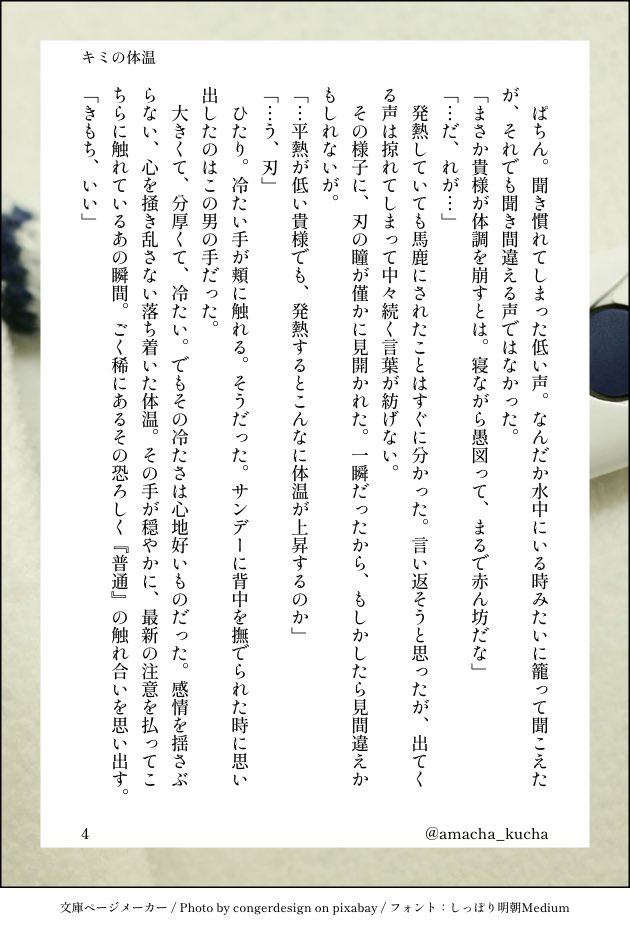 キミの体温
ぱちん。聞き慣れてしまった低い声。なんだか水中にいる時みたいに籠って聞こえた
が、それでも聞き間違える声ではなかった。
「まさか貴様が体調を崩すとは。寝ながら愚図って、まるで赤ん坊だな」
「…だ、れが…」
発熱していても馬鹿にされたことはすぐに分かった。言い返そうと思ったが、出てく
る声は掠れてしまって中々続く言葉が紡げない。
その様子に、刃の瞳が僅かに見開かれた。一瞬だったから、もしかしたら見間違えか
もしれないが。
「…平熱が低い貴様でも、発熱するとこんなに体温が上昇するのか」
「…う、刃」
ひたり。冷たい手が頬に触れる。そうだった。サンデーに背中を撫でられた時に思い
出したのはこの男の手だった。
大きくて、分厚くて、冷たい。でもその冷たさは心地好いものだった。感情を揺さぶ
らない、心を掻き乱さない落ち着いた体温。その手が穏やかに、最新の注意を払ってこ
ちらに触れているあの瞬間。ごく稀にあるその恐ろしく『普通』の触れ合いを思い出す。
「きもち、いい」
4
@amacha_kucha
文庫ページメーカー / Photo by congerdesign on pixabay / フォント：しっぽり明朝Medium